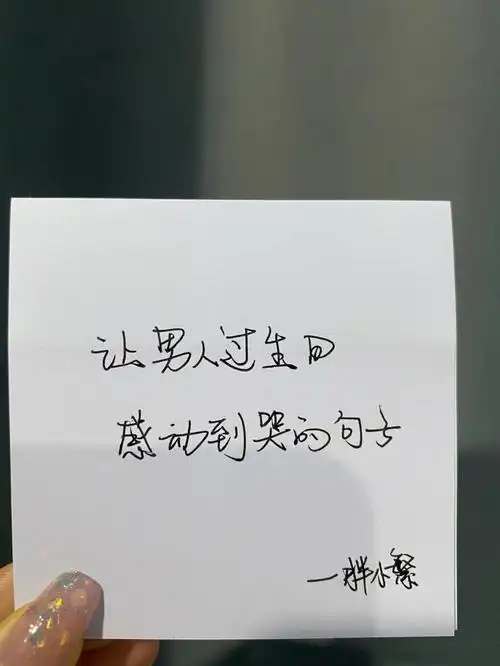 让男人过生日
感动到哭的句子
一胖小繁